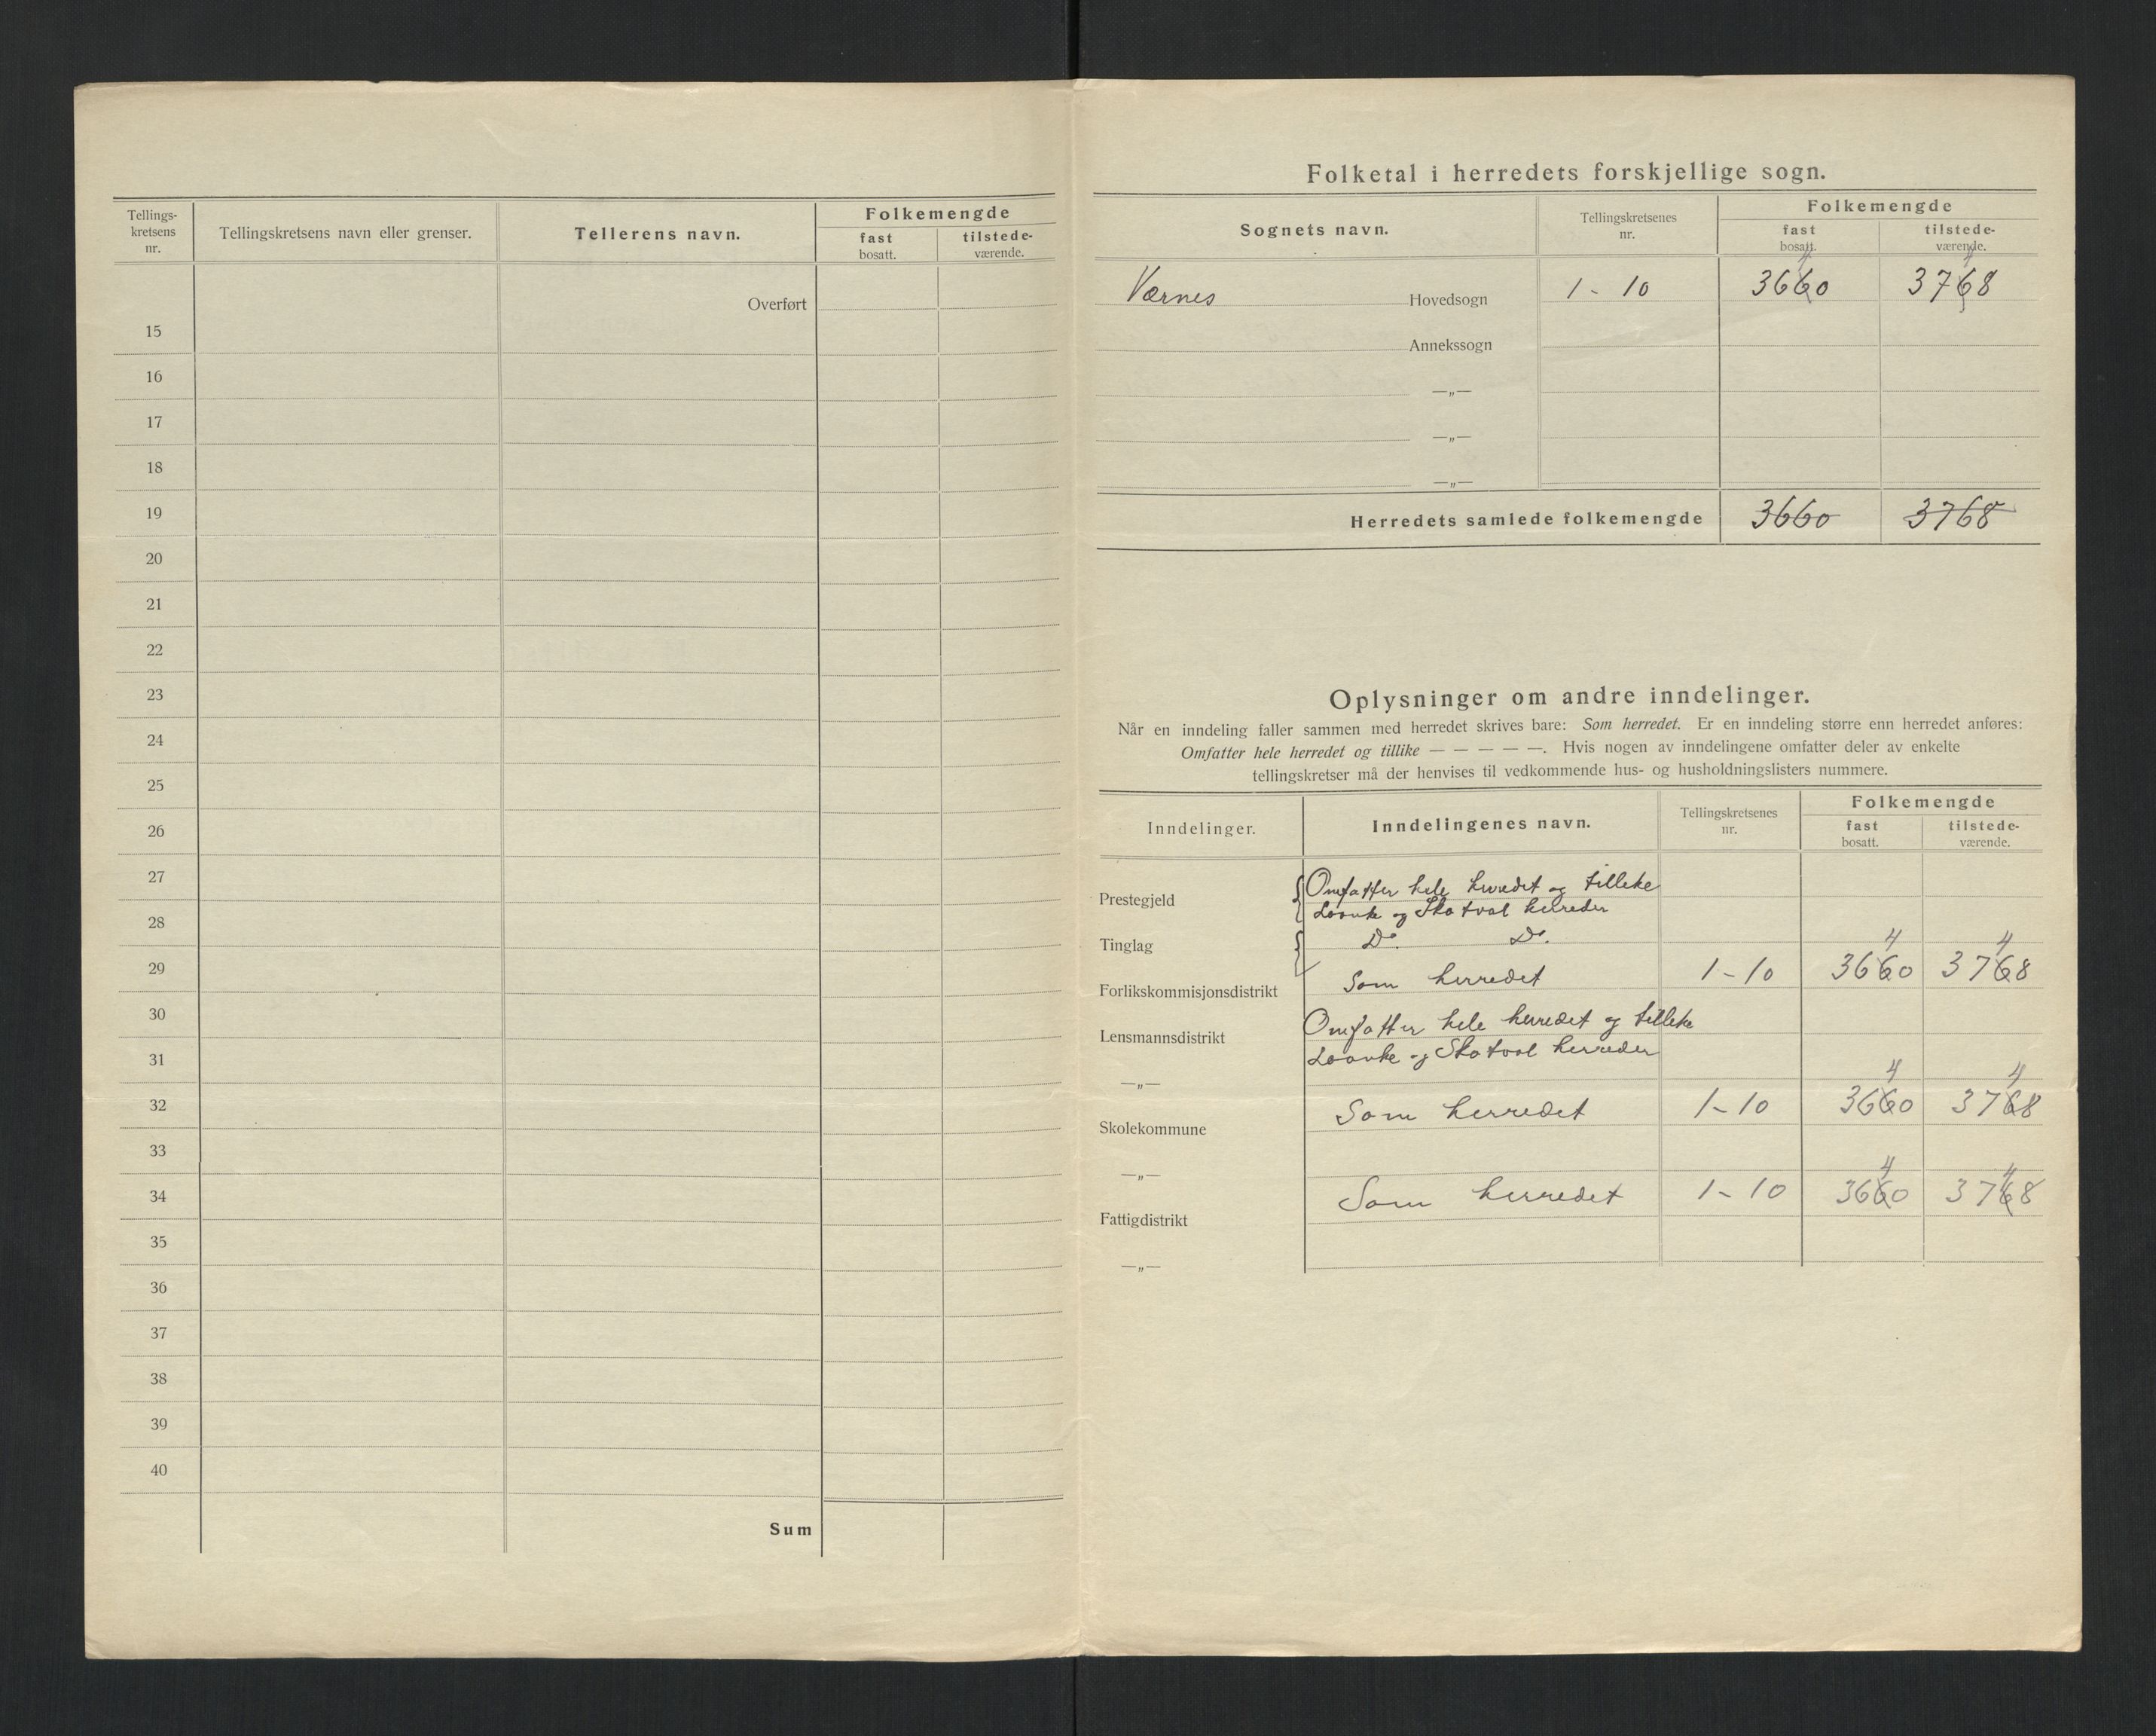 Tellings-
kretsens
nr.
Tellingskretsens navn eller grenser.
Tellerens navn.
Folkemengde
fast
bosatt.
tilstede-
værende.
Overført
15
16
17
18
19
20
21
22
23
24
25
26
27
28
29
30
31
32
33
34
35
36
37
38
39
40
Sum
Folketal i herredets forskjellige sogn.
Sognets navn.
Tellingskretsenes
nr.
Folkemengde
fast
bosatt.
tilstede-
værende.
4 4
Værnes Hovedsogn 1 - 10 3660 3768
Annekssogn
—„—
—„—
—„—
Herredets samlede folkemengde 3660 3768
Oplysninger om andre inndelinger.
Når en inndeling faller sammen med herredet skrives bare: Som herredet. Er en inndeling større enn herredet anføres:
Omfatter hele herredet og tillike — — — — —. Hvis nogen av inndelingene omfatter deler av enkelte
tellingskretser må der henvises til vedkommende hus- og husholdningslisters nummere.
Inndelinger.
Inndelingenes navn.
Tellingskretsenes
nr.
Folkemengde
fast
bosatt.
tilstede-
værende.
Prestegjeld
Omfatter hele herredet og tilleke
Laanke og Skatval herreder
Tinglag
Do. Do.
4 4
Forlikskommisjonsdistrikt
Som herredet 1 - 10 3660 3768
Lensmannsdistrikt
Omfatter hele herredet og tilleke
Laanke og Skatval herreder
—„—
4 4
Skolekommune
Som herredet 1 - 10 3660 3768
—„—
4 4
Fattigdistrikt
Som herredet 1 - 10 3660 3768
—„—